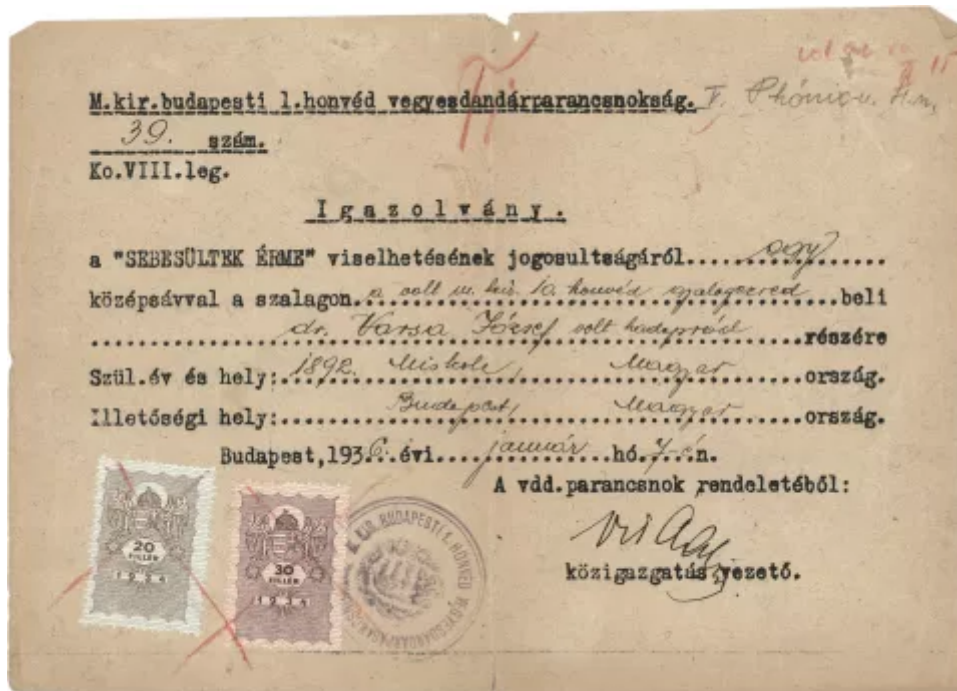 M.kir.budapesti 1.honvéd vegyesdandárparancsnokság. V. Phőnix u.
39. szám.
Ko.VIII.leg.
Igazolvány.
a "SEBESÜLTEK ÉRME" viselhetésének jogosultságáról......egy......
középsávval a szalagon.a volt m. kir. 10. honvéd gyalogezred...beli
dr. Varsa József volt hadapród......részére
Szül.év és hely:.1892. Miskolc, Magyar......ország.
Illetőségi hely:......Budapest, Magyar......ország.
Budapest,1936.évi...január...hó.7-én.
A vdd.parancsnok rendeletéből:
közigazgatás vezető.
20
FILLÉR
1934
30
FILLÉR
1934
M. KIR. BUDAPESTI 1. HONVÉD VEGYESDANDÁRPARANCSNOKSÁG